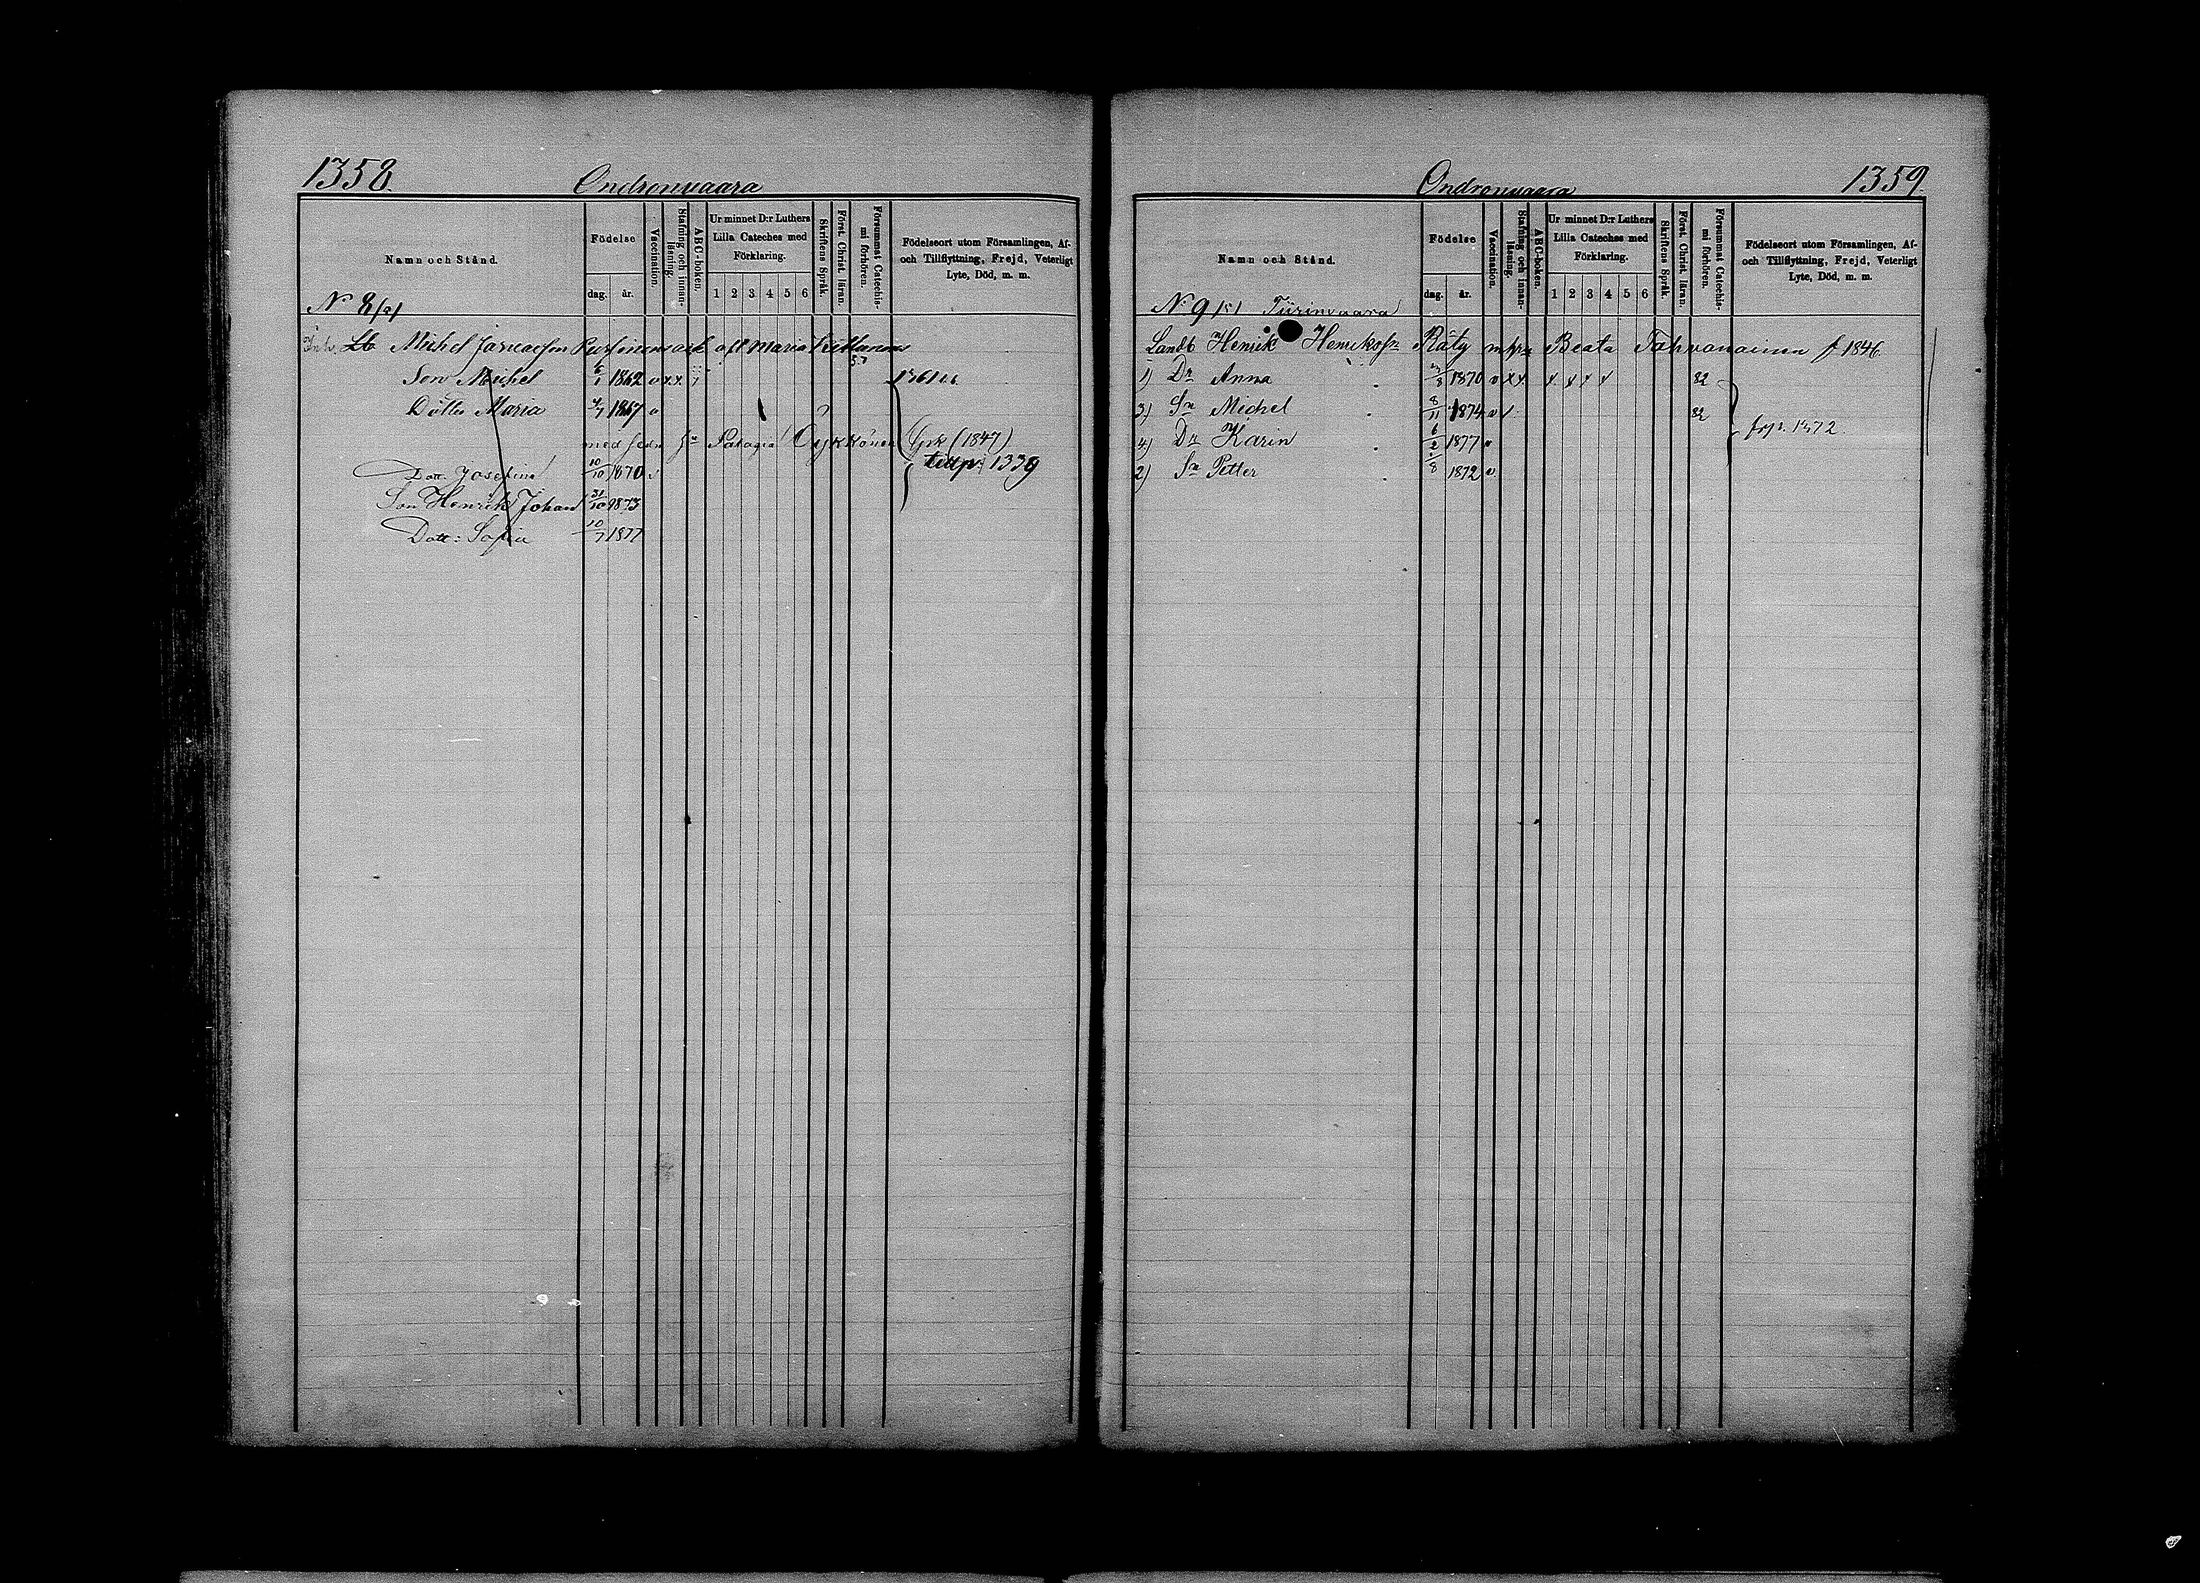 1358.
Ondronvaara
Namn och Stånd.
Födelse
dag. år.
Vaccination.
Stafning och innanläsning.
ABC-boken.
Ur minnet D:r Luthers Lilla Cateches med Förklaring.
1 2 3 4 5 6
Skriftens Språk.
Först. Christ. läran.
Försummat Catechismi förhören.
Födelseort utom Församlingen, Af-
och Tillflyttning, Frejd, Veterligt
Lyte, Död, m. m.
N 8
Lb Michel Maria
Son Michel 6/1 1862 v x x
Dotter Maria 4/7 1867 v
med sedn (1847)
Dott. Josefina 10/10 1870 v 1339
Son Henrik Johan 31/10 1873
Dott: Sofia 10/7 1877
Ondronvaara
1359.
Namn och Stånd.
Födelse
dag. år.
Vaccination.
Stafning och innanläsning.
ABC-boken.
Ur minnet D:r Luthers Lilla Cateches med Förklaring.
1 2 3 4 5 6
Skriftens Språk.
Först. Christ. läran.
Försummat Catechismi förhören.
Födelseort utom Församlingen, Af-
och Tillflyttning, Frejd, Veterligt
Lyte, Död, m. m.
N:o 9 Tiirinvaara
Landb Henrik Henriksn Räty m hn Beata Tahvanainen f 1846.
1) Dr Anna 1870 v x x x x x x 82
3) Sn Michel 8/11 1874 v / 82
4) Dr Karin 6/2 1877 v 1372
2) Sn Petter 1872 v